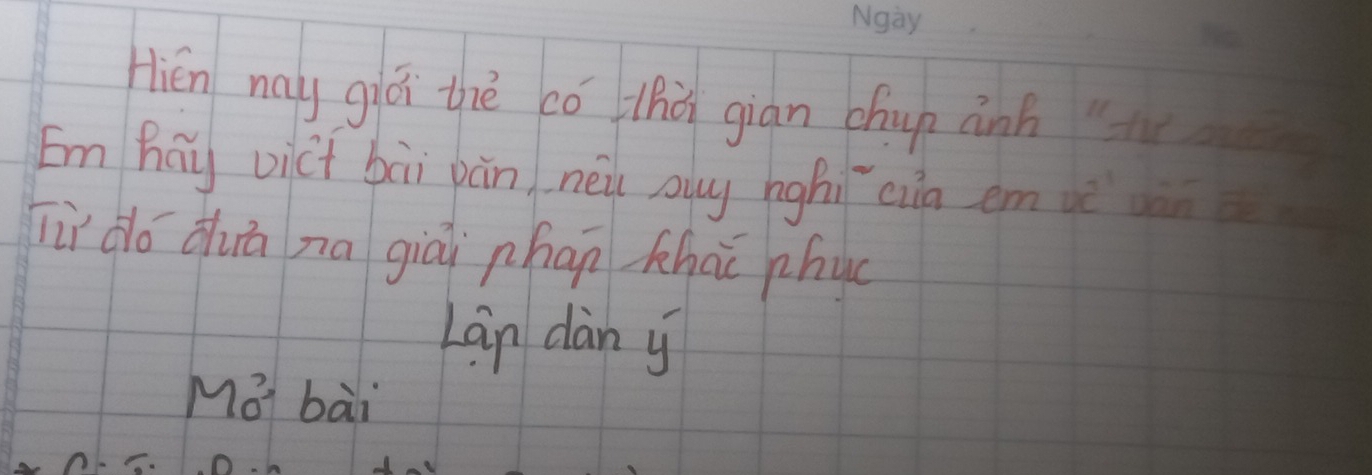 Ngày
Hiên nay giới trẻ có thời gian chụp ảnh "tự
Em hãy viết bài văn, nêu suy nghĩ của em về vấn đề
Từ đó đưa ra giải pháp khắc phục
Lập dàn ý
Mở bài